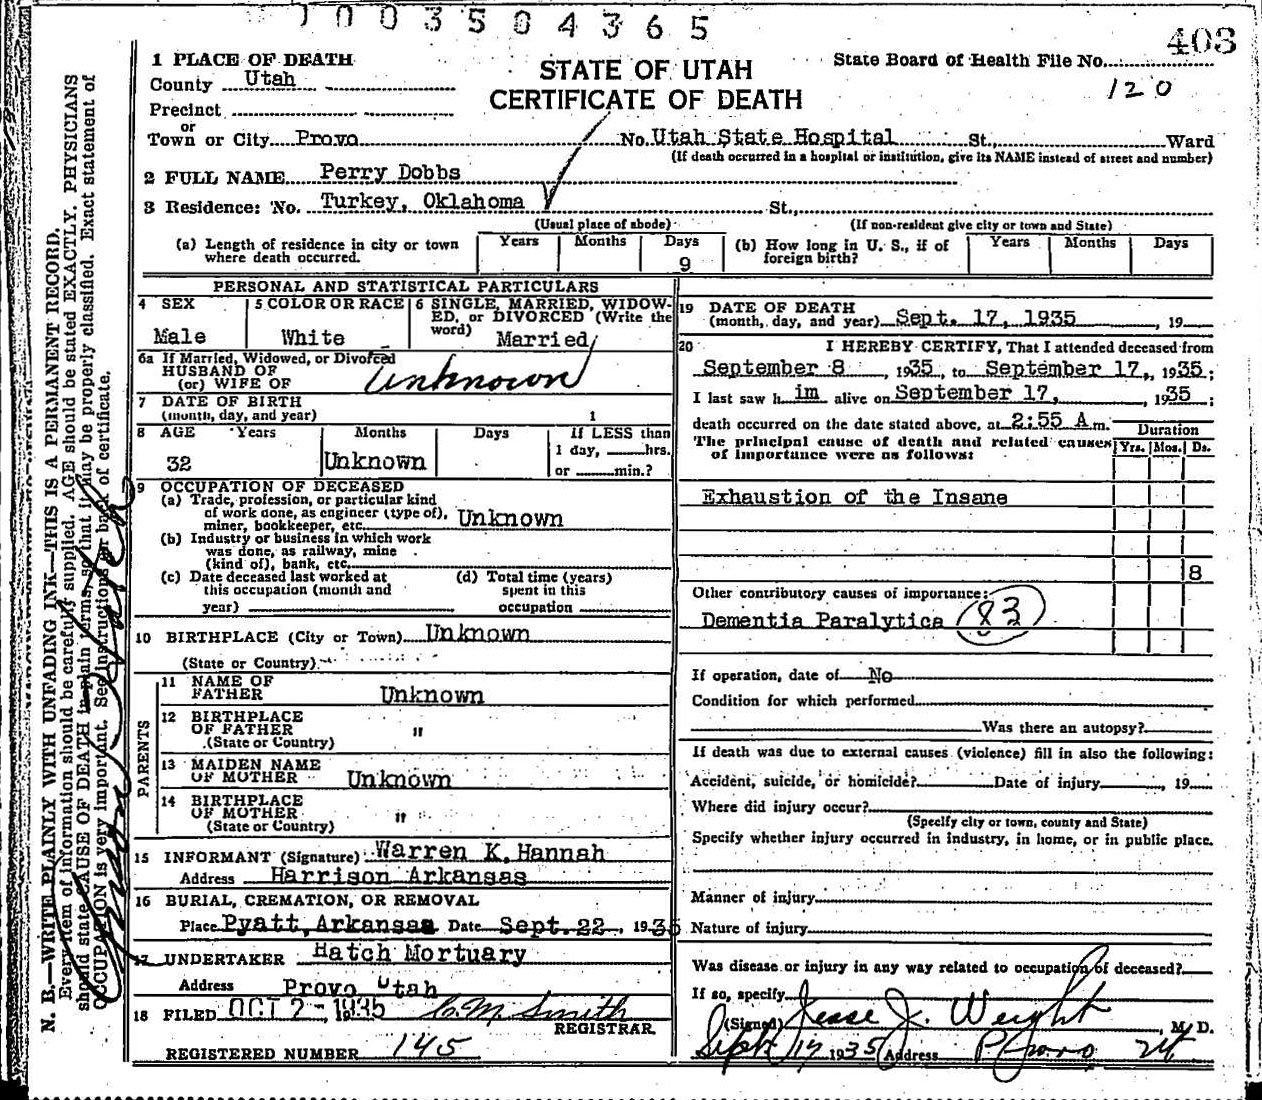 1003504365
403
1 PLACE OF DEATH
County Utah
STATE OF UTAH
CERTIFICATE OF DEATH
State Board of Health File No.
120
Precinct
or
Town or City Provo No. Utah State Hospital St., Ward
(If death occurred in a hospital or institution, give its NAME instead of street and number)
2 FULL NAME Perry Dobbs
3 Residence: No. Turkey, Oklahoma St.,
(Usual place of abode) (If non-resident give city or town and State)
(a) Length of residence in city or town where death occurred. Years Months Days 9
(b) How long in U. S., if of foreign birth? Years Months Days
PERSONAL AND STATISTICAL PARTICULARS
4 SEX Male
5 COLOR OR RACE White
6 SINGLE, MARRIED, WIDOWED, or DIVORCED (Write the word) Married
6a If Married, Widowed, or Divorced
HUSBAND OF
(or) WIFE OF Unknown
7 DATE OF BIRTH
(month, day, and year) 1
8 AGE Years Months Days If LESS than
1 day, hrs.
32 Unknown or min.?
9 OCCUPATION OF DECEASED
(a) Trade, profession, or particular kind
of work done, as engineer (type of),
miner, bookkeeper, etc. Unknown
(b) Industry or business in which work
was done, as railway, mine
(kind of), bank, etc.
(c) Date deceased last worked at
this occupation (month and
year)
(d) Total time (years)
spent in this
occupation
10 BIRTHPLACE (City or Town) Unknown
(State or Country)
PARENTS
11 NAME OF
FATHER Unknown
12 BIRTHPLACE
OF FATHER "
(State or Country)
13 MAIDEN NAME
OF MOTHER Unknown
14 BIRTHPLACE
OF MOTHER "
(State or Country)
15 INFORMANT (Signature) Warren K. Hannah
Address Harrison Arkansas
16 BURIAL, CREMATION, OR REMOVAL
Place Pyatt, Arkansas Date Sept. 22, 1935
17 UNDERTAKER Hatch Mortuary
Address Provo Utah
18 FILED OCT 2-1935 C. M. Smith
REGISTRAR.
REGISTERED NUMBER 145
19 DATE OF DEATH
(month, day, and year) Sept. 17, 1935, 19
20 I HEREBY CERTIFY, That I attended deceased from
September 8, 1935, to September 17,, 1935;
I last saw him alive on September 17, 1935;
death occurred on the date stated above, at 2:55 A m.
The principal cause of death and related causes
of importance were as follows:
Duration
Yrs. Mos. Ds.
Exhaustion of the Insane
8
Other contributory causes of importance:
Dementia Paralytica 83
If operation, date of No
Condition for which performed
Was there an autopsy?
If death was due to external causes (violence) fill in also the following:
Accident, suicide, or homicide? Date of injury, 19
Where did injury occur?
(Specify city or town, county and State)
Specify whether injury occurred in industry, in home, or in public place.
Manner of injury
Nature of injury
Was disease or injury in any way related to occupation of deceased?
If so, specify
(Signed) Jesse J. Weight, M. D.
Sept 17 1935 Address Provo Ut.
N. B.—WRITE PLAINLY WITH UNFADING INK—THIS IS A PERMANENT RECORD.
Every item of information should be carefully supplied. AGE should be stated EXACTLY. PHYSICIANS
should state CAUSE OF DEATH in plain terms, so that it may be properly classified. Exact statement of
OCCUPATION is very important. See instructions on back of certificate.